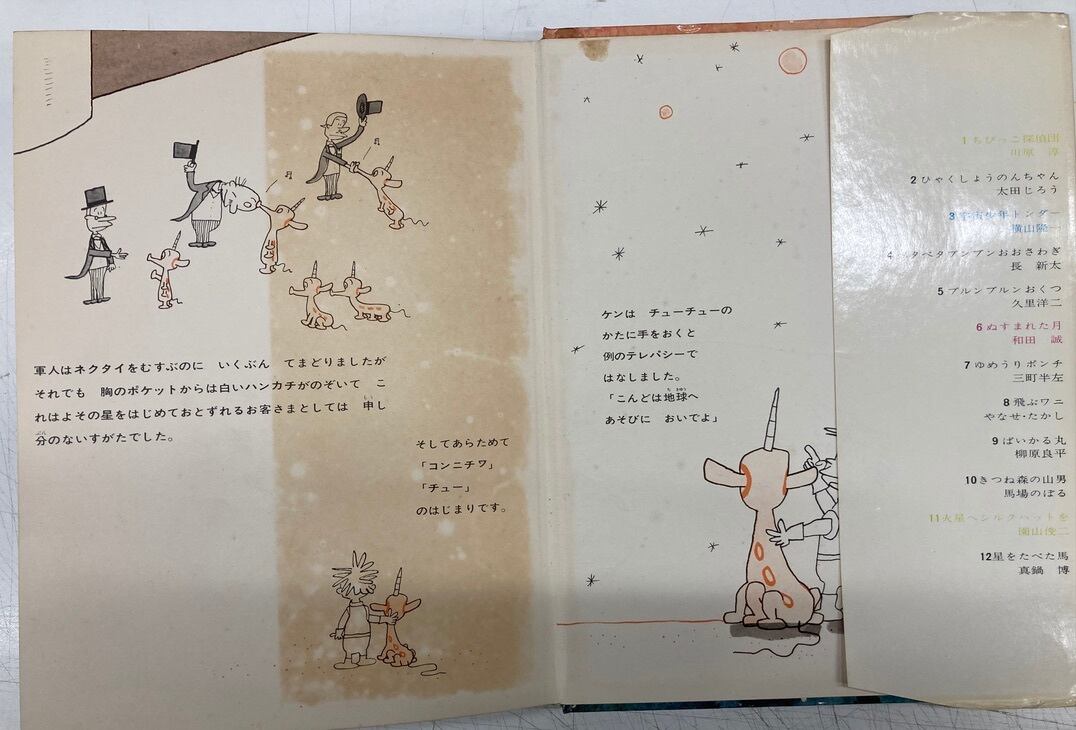 軍人はネクタイをむすぶのに　いくぶん　てまどりましたが
それでも　胸のポケットからは白いハンカチがのぞいて　こ
れはよその星をはじめておとずれるお客さまとしては　申し
分のないすがたでした。
そしてあらためて
「コンニチワ」
「チュー」
のはじまりです。
ケンは　チューチューの
かたに手をおくと
例のテレパシーで
はなしました。
「こんどは地球へ
あそびに　おいでよ」
1ちびっこ探偵団
川原　淳
2ひゃくしょうのんちゃん
太田じろう
3宇宙少年トンダー
横山隆一
4タベタアンブンおおさわぎ
長　新太
5ブルンブルンおくつ
久里洋二
6ぬすまれた月
和田　誠
7ゆめうりポンチ
三町半左
8飛ぶワニ
やなせ・たかし
9ばいかる丸
柳原良平
10きつね森の山男
馬場のぼる
11火星へシルクハットを
園山俊二
12星をたべた馬
真鍋　博